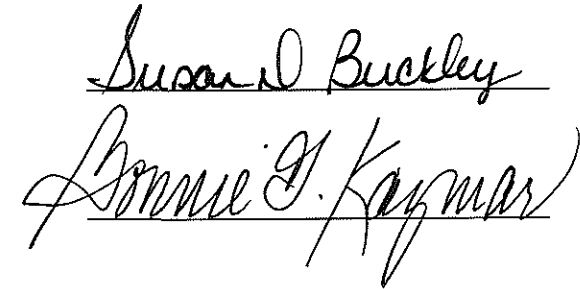 Susan D Buckley
Bonnie G. Kaymar